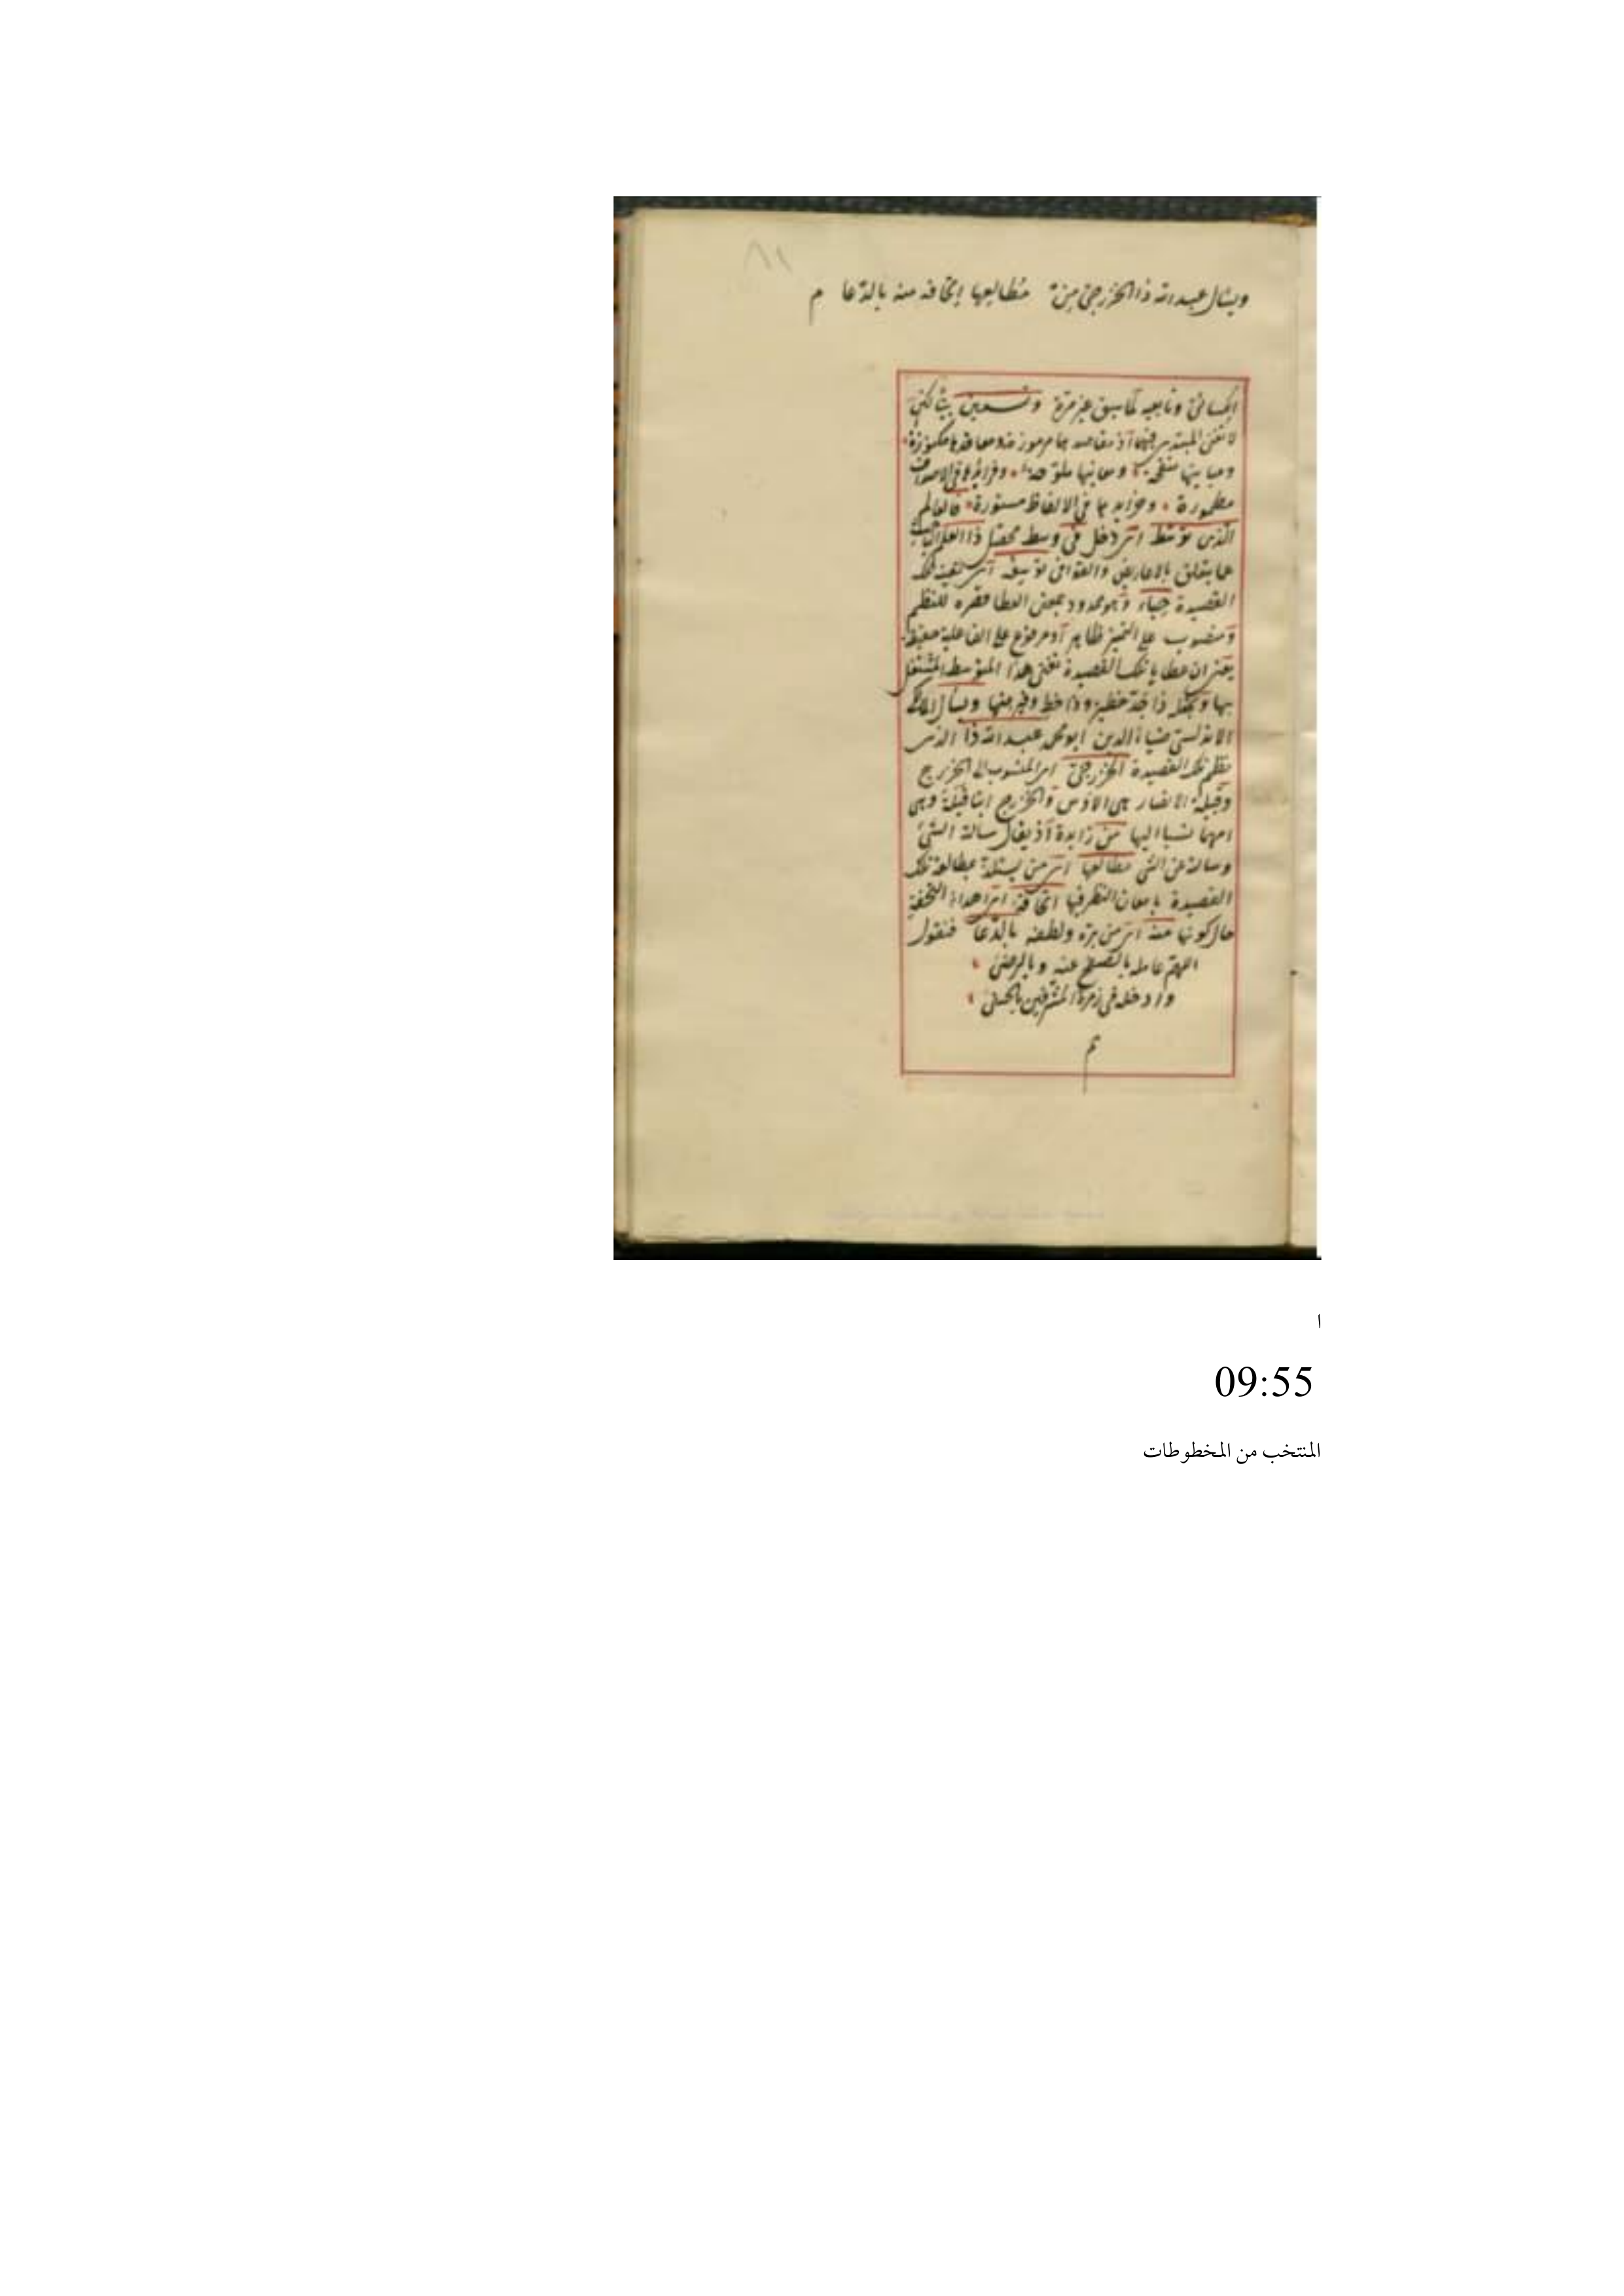 ٨١
ويسال عبد الله ذا الخزرجي من مطالعها إتحافه منه بالدعا م
الكسائي وتابعيه كما سبق غير مرة وتسعين بيتا لكن
لا تغني المبتدي فيها اذ مقاصدها مرموزة ومعاقدها مكنوزة
ومبانيها منقحة ومعانيها ملوحة وفرائدها في الاصداف
مطمورة وخرايدها في الالفاظ مستورة فالعالم
الذي توسط اي دخل في وسط محصل ذا العلم
بما يتعلق بالاعاريض والقوافي توسعه اي تلك
القصيدة حباء وهو ممدود بمعنى العطا قصره للنظم
ومنصوب على التميز ظاهر او مرفوع على الفاعلية
يعني ان عطايا تلك القصيدة تغني هذا المتوسط المشتغل
بها وتجعله ذا وذا حظ وفير منها ويسأل المالكي
الاندلسي ضياء الدين ابو محمد عبد الله ذا الذي
نظم تلك القصيدة الخزرجي اي المنسوب الى الخزرج
وقبيلة الانصار هي الاوس والخزرج ابنا قيلة وهي
امهما نسبا اليها من زايدة اذ يقال سالته الشئ
وسالته عن الشئ مطالعها اي من بمطالعة تلك
القصيدة بامعان النظر فيها اتحافه اي اهداء التحفة
حال كونها منه اي من بره ولطفه بالدعا فنقول
اللهم عامله بالصفح عنه وبالرضى
وادخله في زمرة المشرفين بالحسنى
تم
ا
09:55
المنتخب من المخطوطات